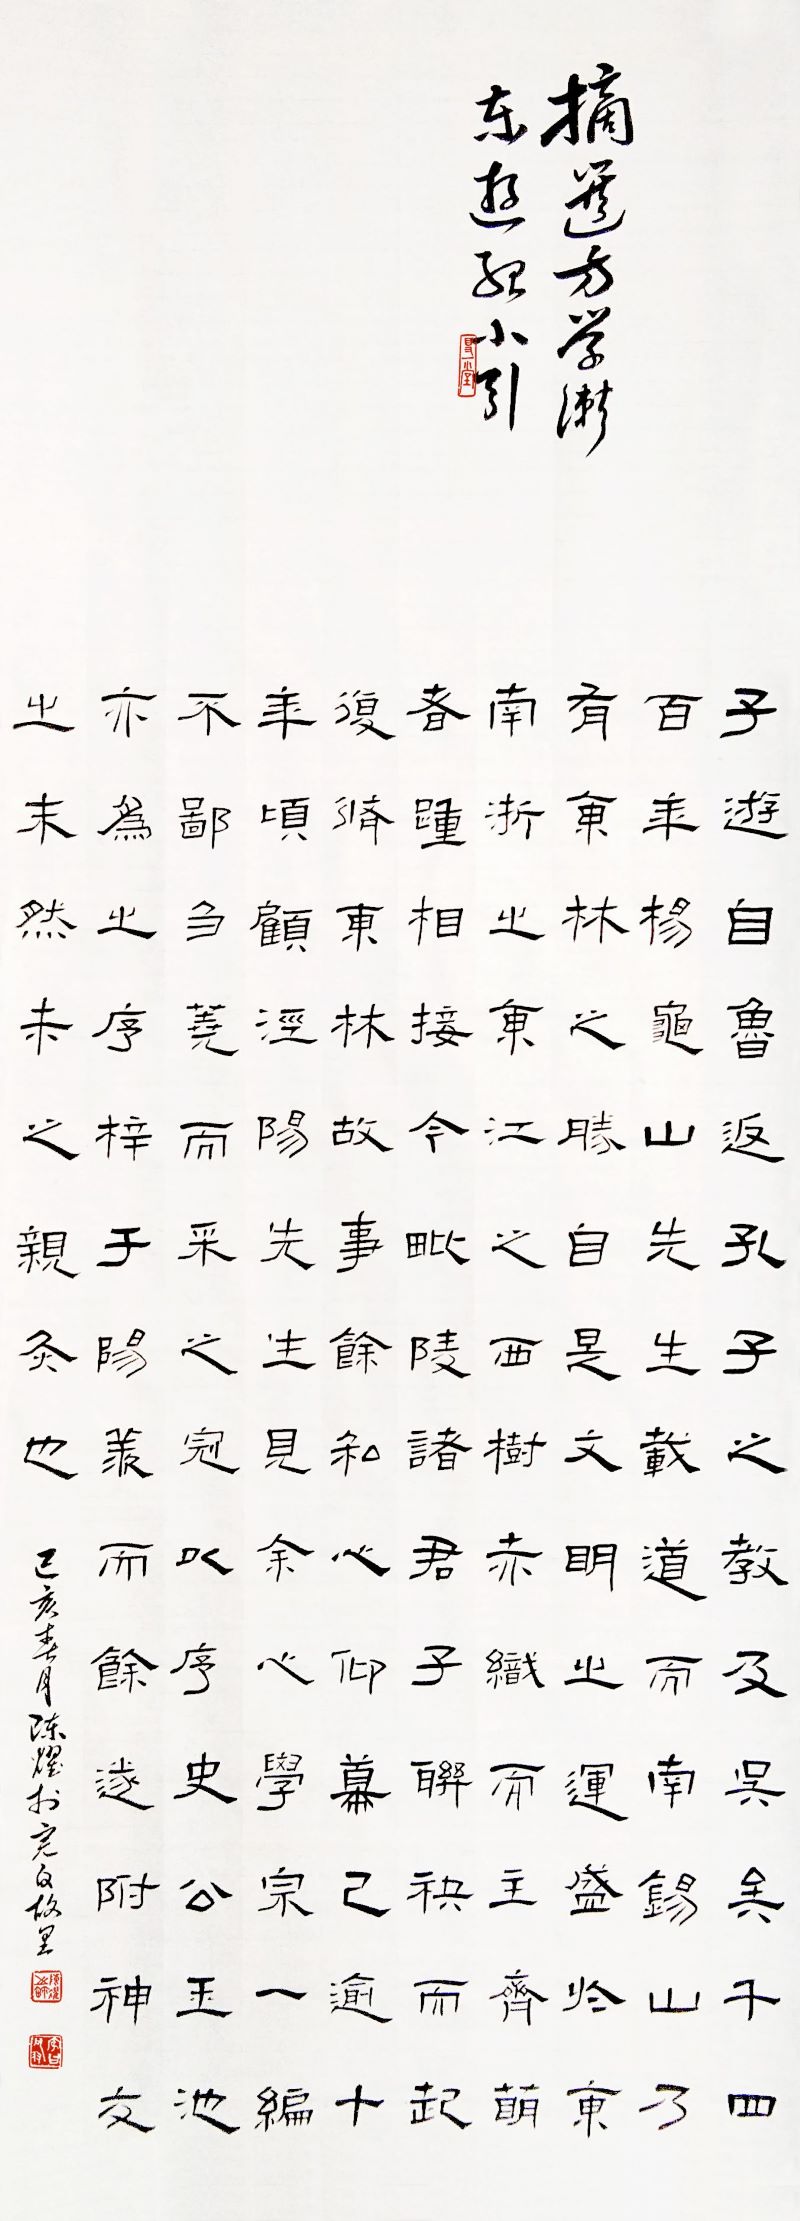 摘選方学漸
东遊纪小引
子遊自魯返孔子之教及吳矣千四
百年楊龜山先生載道而南錫山乃
有東林之勝自是文明之運盛於東
南浙之東江之西樹赤織而主齊萌
者踵相接今毗陵諸君子聯袂而起
復脩東林故事餘私心仰慕已逾十
年頃顧涇陽先生見余心學宗一編
不鄙刍蕘而采之冠以序史公玉池
亦為之序梓于陽羨而餘遂附神友
之末然未之親炙也
己亥春月陈燿於完白故里